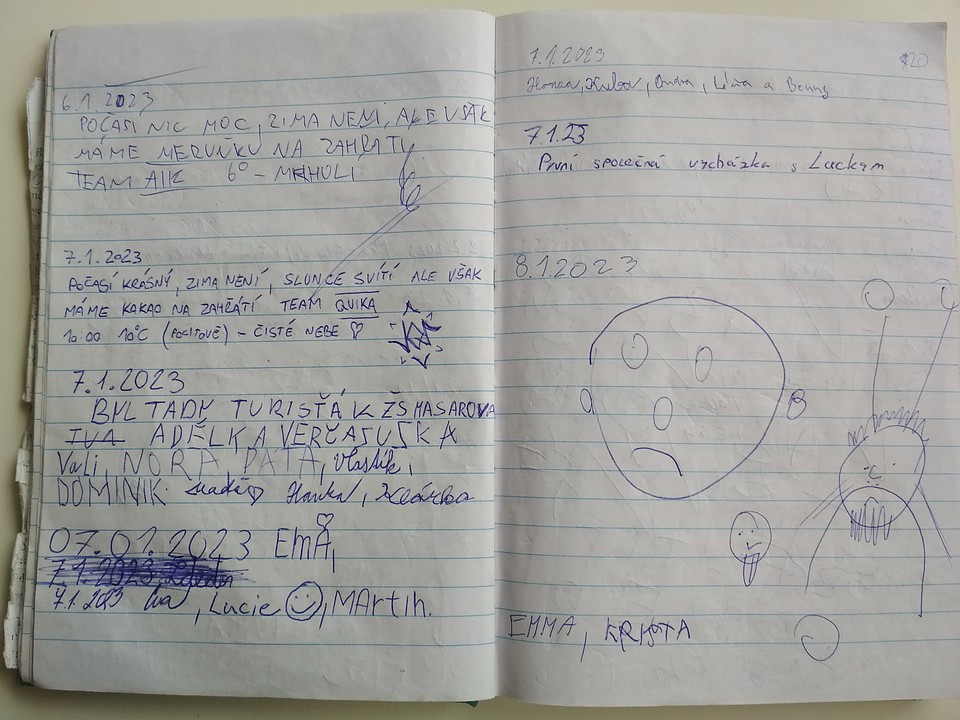 6.1.2023
POČASÍ NIC MOC, ZIMA NENÍ, ALE VŠAK
MÁME MERUŇKU NA ZAHŘÁTÍ
TEAM AIK 6° - MRHOLÍ
7.1.2023
POČASÍ KRÁSNÝ, ZIMA NENÍ, SLUNCE SVÍTÍ ALE VŠAK
MÁME KAKAO NA ZAHŘÁTÍ TEAM QUIKA
10:00 10°C (POCITOVĚ) - ČISTÉ NEBE ♡
7.1.2023
BYL TADY TURISŤÁK ZŠ MASAROVA
IVA ADÉLKA VERČA SUŠKA
Vali, NORA, PATA, Vlastík,
DOMINIK Naďa Hanka, Klárka
07.01.2023 EmA,
7.1.2023
7.1.2023 Iva, Lucie ☺, MArtin.
7.1.2023
120
Honza, Kuba, Ondra, Léňa a Benny
7.1.23
První společná vycházka s Luckym
8.1.2023
EMMA, KRISTA